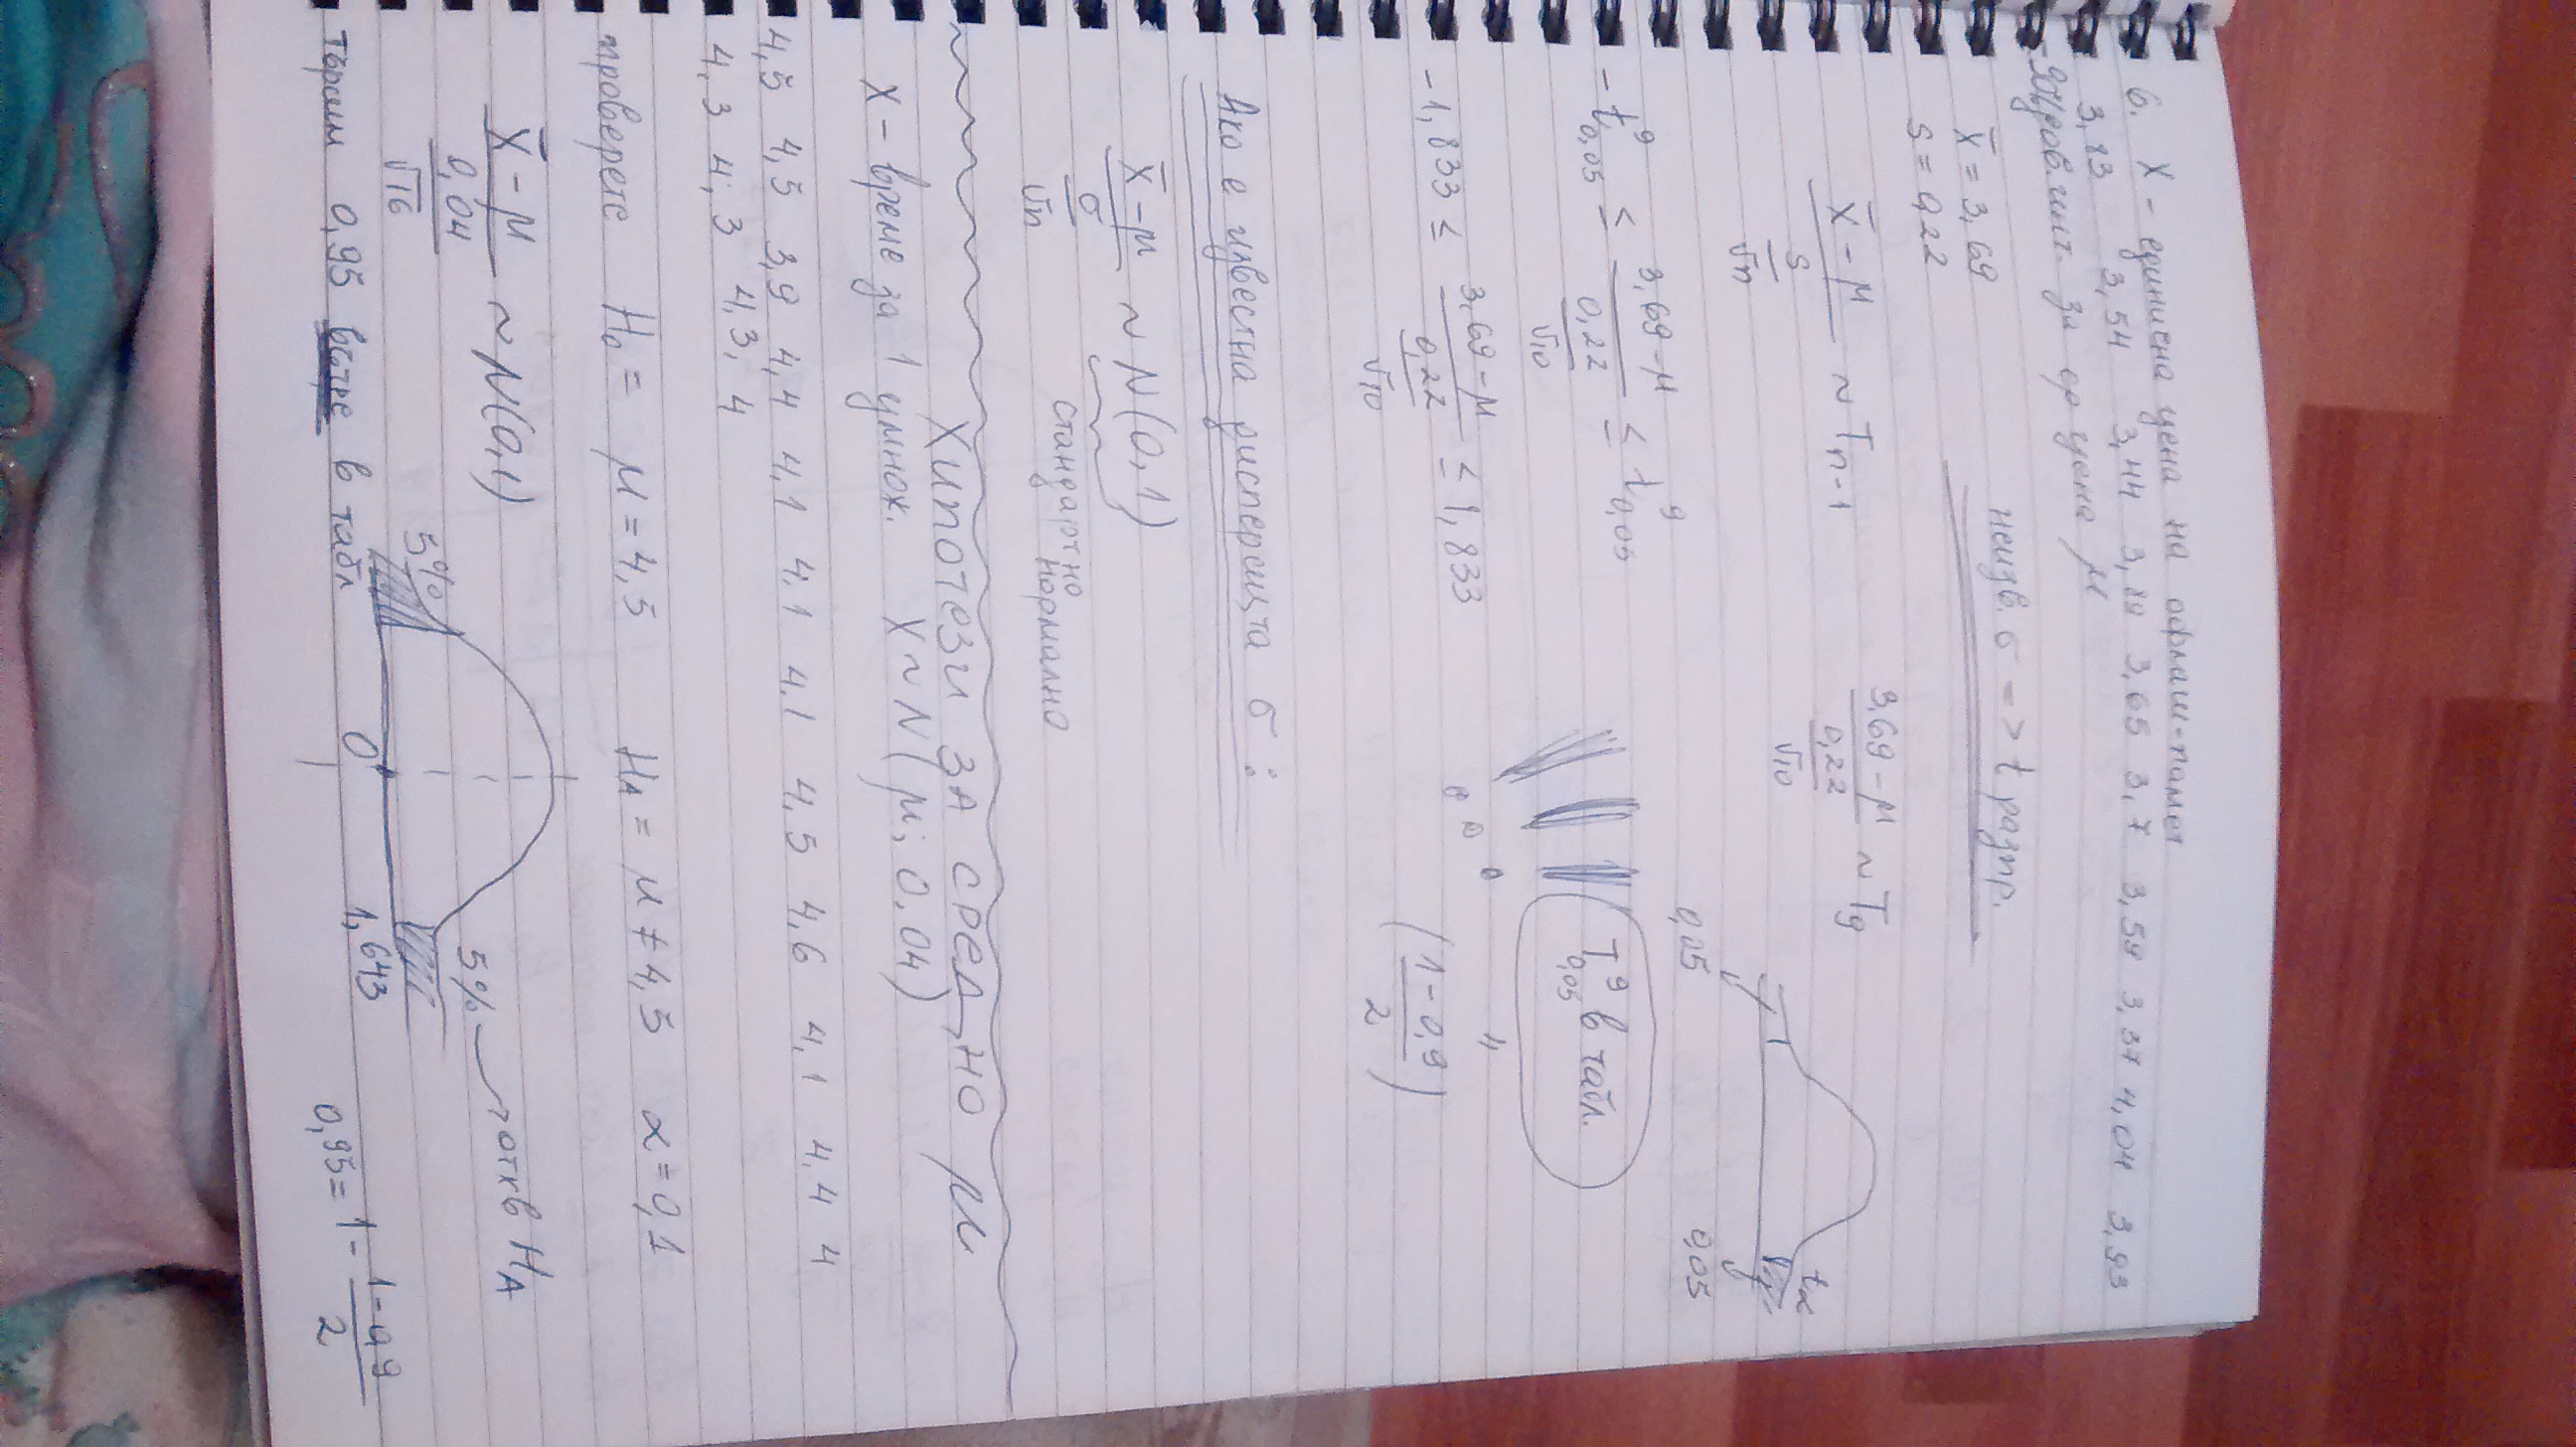 6. X - единична цена на офлаш-памет
3,83 3,54 3,44 3,89 3,65 3,7 3,59 3,37 4,04 3,93
90% дов. инт. за ср цена μ
X̄ = 3,69
s = 0,22
неизв. σ => t разпр.
(X̄ - μ) / (s/√n) ~ T n-1
(3,69 - μ) / (0,22/√10) ~ T9
0,05 0,05 tα
-t⁹0,05 ≤ (3,69 - μ) / (0,22/√10) ≤ t⁹0,05
T⁹0,05 в табл.
-1,833 ≤ (3,69 - μ) / (0,22/√10) ≤ 1,833
((1 - 0,9) / 2)
Ако е известна дисперсията σ:
(X̄ - μ) / (σ/√n) ~ N(0,1)
стандартно нормално
ХИПОТЕЗИ ЗА СРЕДНО μ
X - време за 1 умнож. X ~ N(μ; 0,04)
4,5 4,5 3,9 4,4 4,1 4,1 4,1 4,5 4,6 4,1 4,4 4
4,3 4,3 4,3, 4
проверете H0 = μ = 4,5 HA = μ ≠ 4,5 α = 0,1
(X̄ - μ) / (0,04/√16) ~ N(0,1)
5% 5% отхв HA
0 1,643
търсим 0,95 вътре в табл 0,95 = 1 - (1 - 0,9) / 2